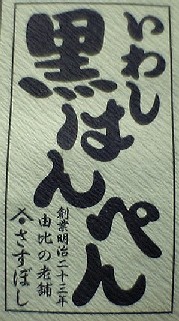 いわし
黒はんぺん
創業明治二十三年
由比の老舗
さすぼし